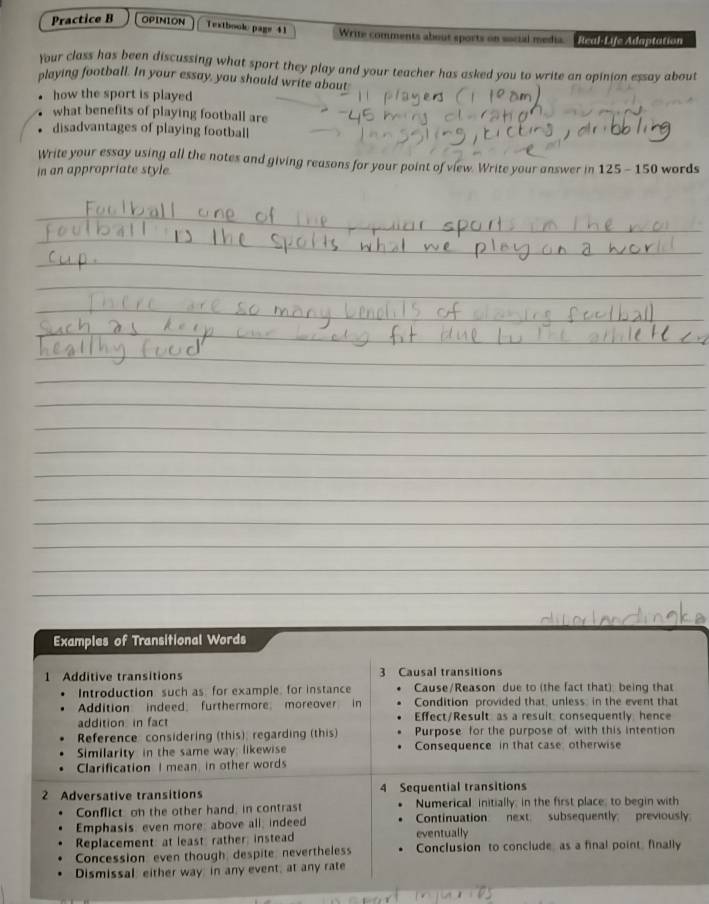 Practice B OPINION Textbook: page 41 Write comments about sports on social media. Real-Life Adaptation
Your class has been discussing what sport they play and your teacher has asked you to write an opinion essay about
playing football. In your essay, you should write about:
• how the sport is played - 11 players (1 team)
• what benefits of playing football are -45 mins duration
• disadvantages of playing football kicking, dribbling
Write your essay using all the notes and giving reasons for your point of view. Write your answer in 125 - 150 words
in an appropriate style.
Foulball one of sports im the
Foulball is the spolts what we play on a world
cup.
There are so many of foulball
Such as keep fit due to
healthy food
Examples of Transitional Words
1 Additive transitions
• Introduction such as; for example; for instance
• Addition indeed; furthermore; moreover; in
addition; in fact
• Reference: considering (this); regarding (this)
• Similarity: in the same way; likewise
• Clarification: I mean; in other words
2 Adversative transitions
• Conflict: on the other hand; in contrast
• Emphasis: even more; above all; indeed
• Replacement: at least; rather; instead
• Concession: even though; despite; nevertheless
• Dismissal: either way; in any event; at any rate
3 Causal transitions
• Cause/Reason: due to (the fact that); being that
• Condition: provided that; unless; in the event that
• Effect/Result: as a result; consequently; hence
• Purpose: for the purpose of; with this intention
• Consequence: in that case; otherwise
4 Sequential transitions
• Numerical: initially; in the first place; to begin with
• Continuation: next; subsequently; previously;
eventually
• Conclusion: to conclude; as a final point; finally
injuries